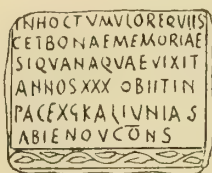 INHOCTVMVLOREQVIIS
CETBONAEMEMORIAE
SIQVANAQVAEVIXIT
ANNOSXXXOBIITIN
PACEXGKALIVNIAS
ABIENOVCŌNS